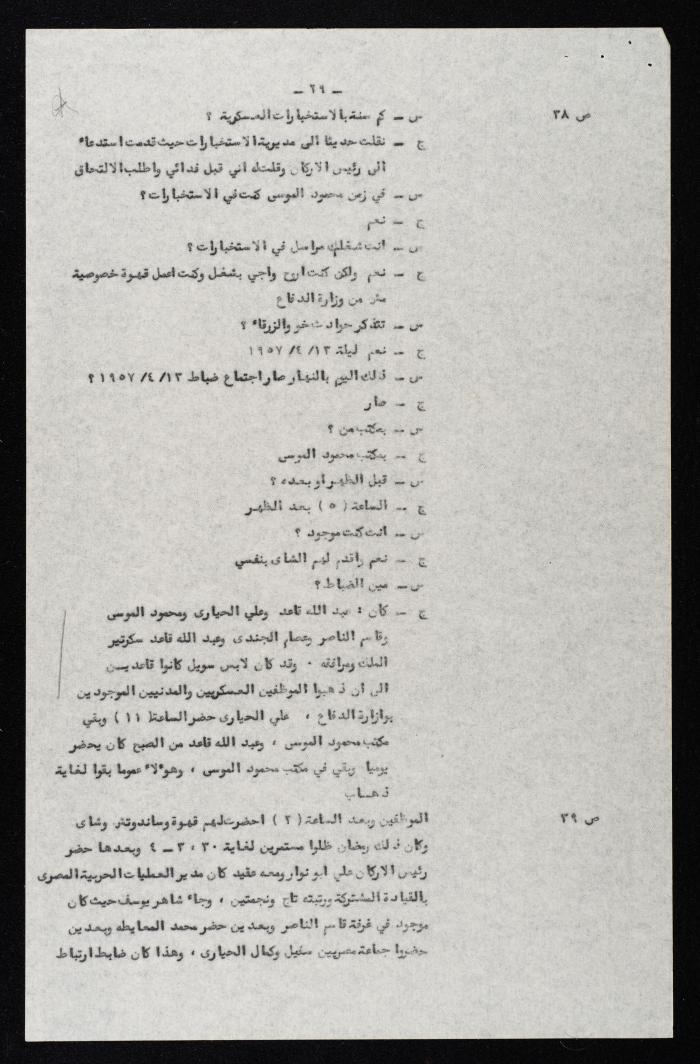 – ٢٩ –
ص ٣٨
س – كم سنة بالاستخبارات العسكرية ؟
ج – نقلت حديثا الى مديرية الاستخبارات حيث قدمت استدعاء
الى رئيس الاركان وقلت له اني قبل فدائي واطلب الالتحاق
س – في زمن محمود الموسى كنت في الاستخبارات ؟
ج – نعم
س – انت شغلك مراسل في الاستخبارات ؟
ج – نعم ولكن كنت اروح واجي بشغل وكنت اعمل قهوة خصوصية
من وزارة الدفاع
س – تتذكر حوادث خو والزرقاء ؟
ج – نعم ليلة ١٣/ ٤/ ١٩٥٧
س – ذلك اليوم بالنهار صار اجتماع ضباط ١٣/ ٤/ ١٩٥٧ ؟
ج – صار
س – بمكتب من ؟
ج – بمكتب محمود الموسى
س – قبل الظهر او بعده ؟
ج – الساعة ( ٥ ) بعد الظهر
س – انت كنت موجود ؟
ج – نعم واقدم لهم الشاى بنفسي
س – مين الضباط ؟
ج – كان : عبد الله قاعد وعلي الحيارى ومحمود الموسى
وقاسم الناصر وعصام الجندى وعبد الله قاعد سكرتير
الملك ومرافقه ٠ وقد كان لابس سويل كانوا قاعديـن
الى ان ذهبوا الموظفين العسكريين والمدنيين الموجودين
بوازارة الدفاع ، علي الحيارى حضر الساعة( ١١ ) وبقي
مكتب محمود الموسى ، وعبد الله قاعد من الصبح كان يحضر
يوميا وبقي في مكتب محمود الموسى ، وهولاء عموما بقوا لغاية
ذهـاب
ص ٣٩
الموظفين وبعد الساعة ( ٢ ) احضرت لهم قهوة وساندوتش وشاى
وكان ذلك رمضان ظلوا مستمرين لغاية ٣٠ ، ٣ – ٤ وبعدها حضر
رئيس الاركان علي ابو نوار ومعه عقيد كان مدير العمليات الحربية المصرى
بالقيادة المشتركة ورتبته تاج ونجمتين ، وجاء شاهر يوسف حيث كان
موجود في غرفة قاسم الناصر وبعدين حضر محمد المعايطه وبعدين
حضروا جماعة مصريين سفيل وكمال الحيارى ، وهذا كان ضابط ارتباط